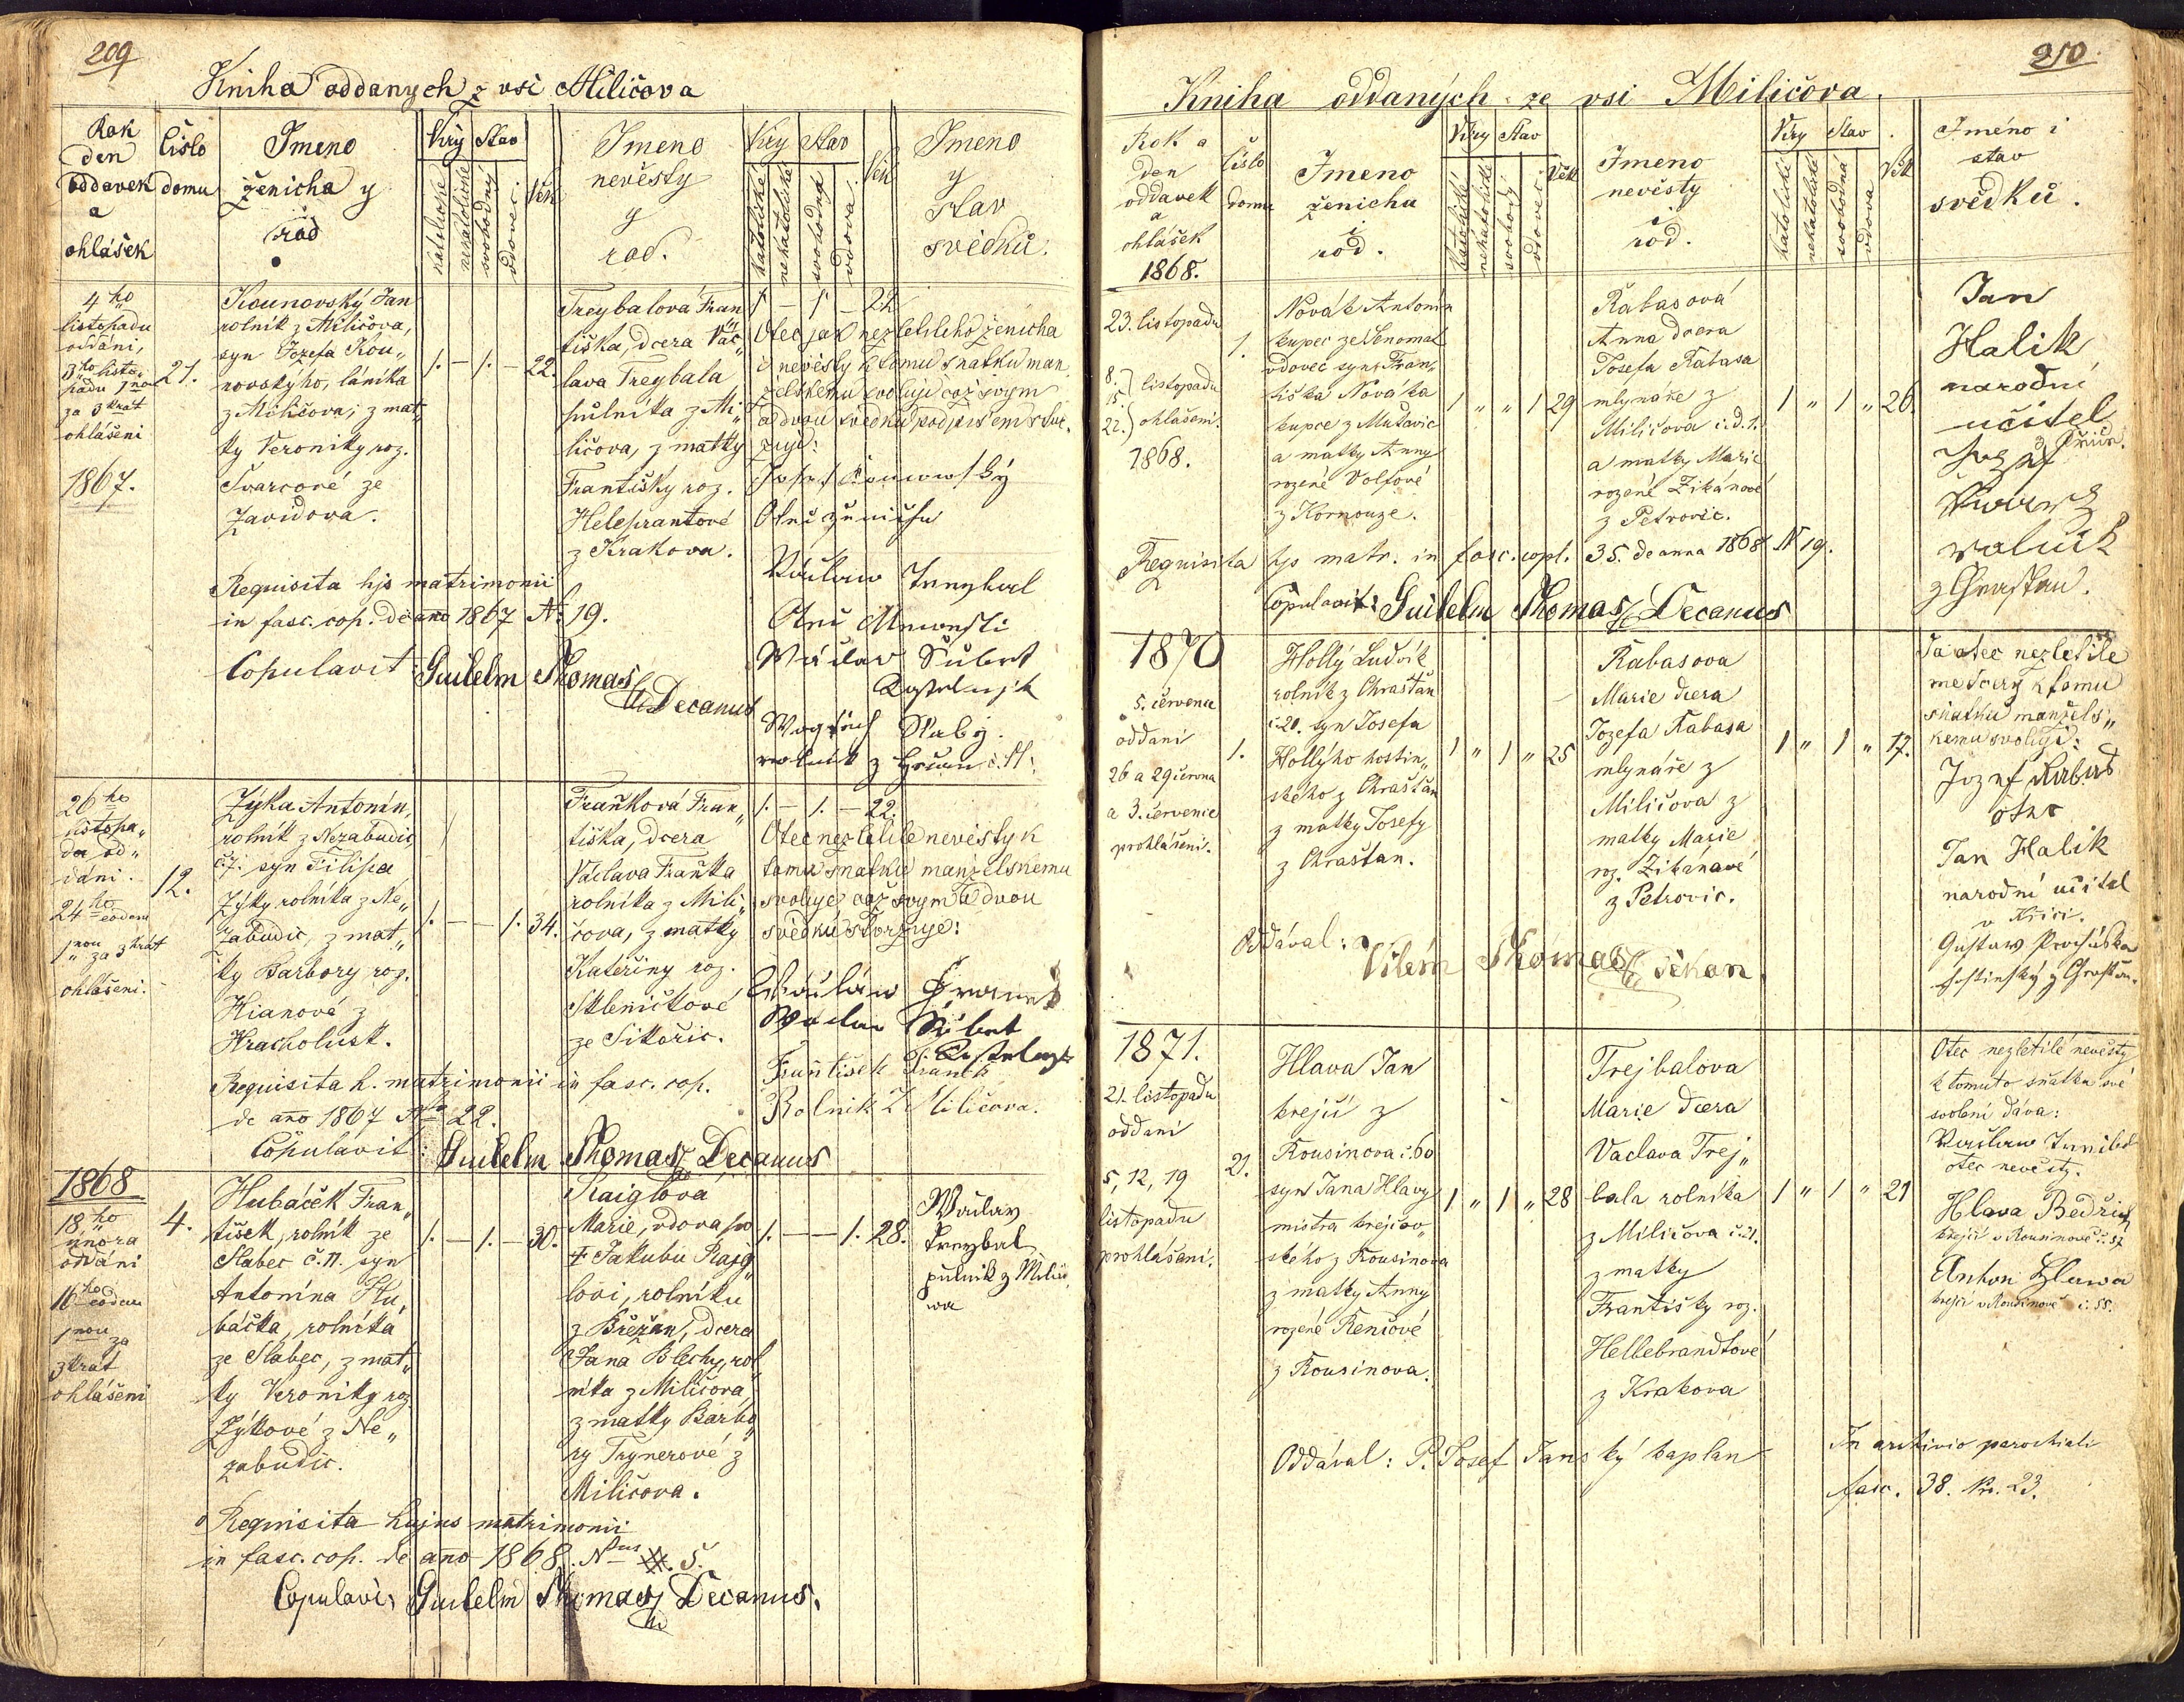 209
Kniha oddanych z vsi Miličova
Rok
den
oddavek
a
ohlášek
Číslo
domu
Jmeno
ženicha y
rod
Víry
Stav
katolické
nekatolické
svobodný
vdovec
Věk
Jmeno
nevěsty
y
rod.
Víry
Stav
katolické
nekatolické
svobodná
vdova
Věk
Jmeno
y
Stav
svědků.
4ho
listopadu
oddáni,
3ho listo„
padu
za 3krát
ohlášeni
1867.
21.
Kounovský Jan
rolník z Miličova,
syn Jozefa Kou„
novského, láníka
z Miličova, z mat„
ky Veroniky roz.
Švarcové ze
Zavidova.
1. – 1. – 22.
Treybalová Fran„
tiška, dcera Vác„
lava Treybala
půlníka z Mi„
ličova, z matky
Františky roz.
Helebrantové
z Krakova.
1 – 1 – 22
Otec jak nezletilého ženicha
i nevěsty k tomu sňatku man„
želskému svoluje což svým
a dvou svědků podpisem stvr„
zuje:
Josef Kounowský
Otec ženicha
Václaw Treybal
Otec Newěsti
Wáclaw Šubert
Kostelnjk
Wogtěch Slabý.
rolník z
Requisita hjs matrimonii
in fasc. cop. de año 1867 No. 19.
Copulavit: Guilelm Thomas
Decanus
26ho
listopa„
du od„
dáni.
24ho eodem
za 3krát
ohlášeni.
12.
Zýka Antonín,
rolník z Nezabudic
č. 7. syn Filipa
Zýky rolníka z Ne„
zabudic, z mat„
ky Barbory roz.
Hianové z
Hracholusk.
1. – – 1. 34.
Fraňková Fran„
tiška, dcera
Václava Fraňka
rolníka z Mili„
čova, z matky
Kateřiny roz.
Skleničkové
ze Sikořic.
1. – 1. – 22.
Otec nezletilé nevěsty k
tomu sňatku manželskému
svoluje což svým a dvou
svědků stvrzuje:
Wáclaw Franěk
Waclaw Šubert
Kostelnjk
František Franěk
Rolnik z Miličova.
Requisita h. matrimonii in fasc. cop.
de año 1867 No 22.
Copulavit: Guilelm Thomas Decanus
1868
18.ho
února
oddáni
16ho eodem
za
3krát
ohlášeni
4.
Hubáček Fran„
tišek, rolník ze
Slabec č. 11. syn
Antonína Hu„
báčka, rolníka
ze Slabec, z mat„
ky Veroniky roz
Zýkové z Ne„
zabudic.
1. – 1. – 30.
Raiglová
Marie, vdova po
† Jakubu Rajg„
lovi, rolníku
z Břežan, dcera
Jana Blechy, rol„
níka z Miličova,
z matky Barbo„
ry Trynerové z
Miličova.
1. – – 1. 28.
Wáclav
Treybal
půlník z Miličo
wa
Requisita hujus matrimonii
in fasc. cop. de año 1868. Nrus 5.
Copulavi: Guilelm Thomas Decanus.
210
Kniha oddaných ze vsi Miličova.
Rok a
den
oddavek
a
ohlášek
1868.
Číslo
domu
Jmeno
ženicha
i
rod.
Víry
Stav
katolické
nekatolické
svobodý
vdovec
Věk
Jmeno
nevěsty
i
rod.
Víry
Stav
katolické
nekatolické
svobodná
vdova
Věk
Jméno i
stav
svědků.
23. listopadu
8.
15. listopadu
22. ohlášeni.
1868.
1.
Novák Antonín
kupec ze Senomat
vdovec syn Fran„
tiška Nováka
kupce z Mutovic
a matky Anny
rozené Volfové
z Kornouze.
1 „ „ 1 29
Rabasová
Anna dcera
Josefa Rabasa
mlynáře z
Miličova č. d. 1.
a matky Marie
rozené Zikánové
z Petrovic.
1 „ 1 „ 26.
Jan
Halik
narodní
učitel
Jozef
Švarz
rolník
z Chrastan.
Requisita hjs matr. in fasc. copl. 35. de anna 1868 N 19.
Copulavit: Guilelm Thomas Decanus
1870
5. července
oddani
26 a 29 června
a 3. července
prohlášeni.
1.
Hollý Ludvík
rolník z Chrašťan
č. 20. syn Josefa
Hollýho hostin„
ského z Chrašťan
z matky Josefy
z Chrašťan.
1 „ 1 „ 25
Rabasova
Marie dcera
Jozefa Rabasa
mlynáře z
Miličova z
matky Marie
roz. Zikánové
z Petrovic.
1 „ 1 „ 17.
Já otec nezletile
mé dcery k tomu
sňatku manžels„
kemu svoluji:
Jozef Rabas
otec
Jan Halik
narodní učitel
Gustaw Procháska
hostinský z Chraštan.
Oddával: Vilém Thomas děkan.
1871.
21. listopadu
oddani
5, 12, 19
listopadu
prohlášeni.
21.
Hlava Jan
krejčí z
Kousinova č. 60
syn Jana Hlavy
mistra krejčov„
ského z Kousinova
z matky Anny
rozené Renčové
z Kousinova.
1 „ 1 „ 28
Trejbalova
Marie dcera
Vaclava Trej„
bala rolníka
z Miličova č. 21.
z matky
Františky roz.
Hellebrandtové
z Krakova
1 „ 1 „ 21
Otec nezletilé nevěsty
k tomuto sňatku své
svolení dává:
otec nevěsty.
Hlava Bedřich
krejčí v Kousinově č. 57
Anton Hlawa
krejčí v Kousinově č. 55.
Oddával: P. Josef Janský kaplan
In archivio parochiali
fasc. 38. Nr. 23.